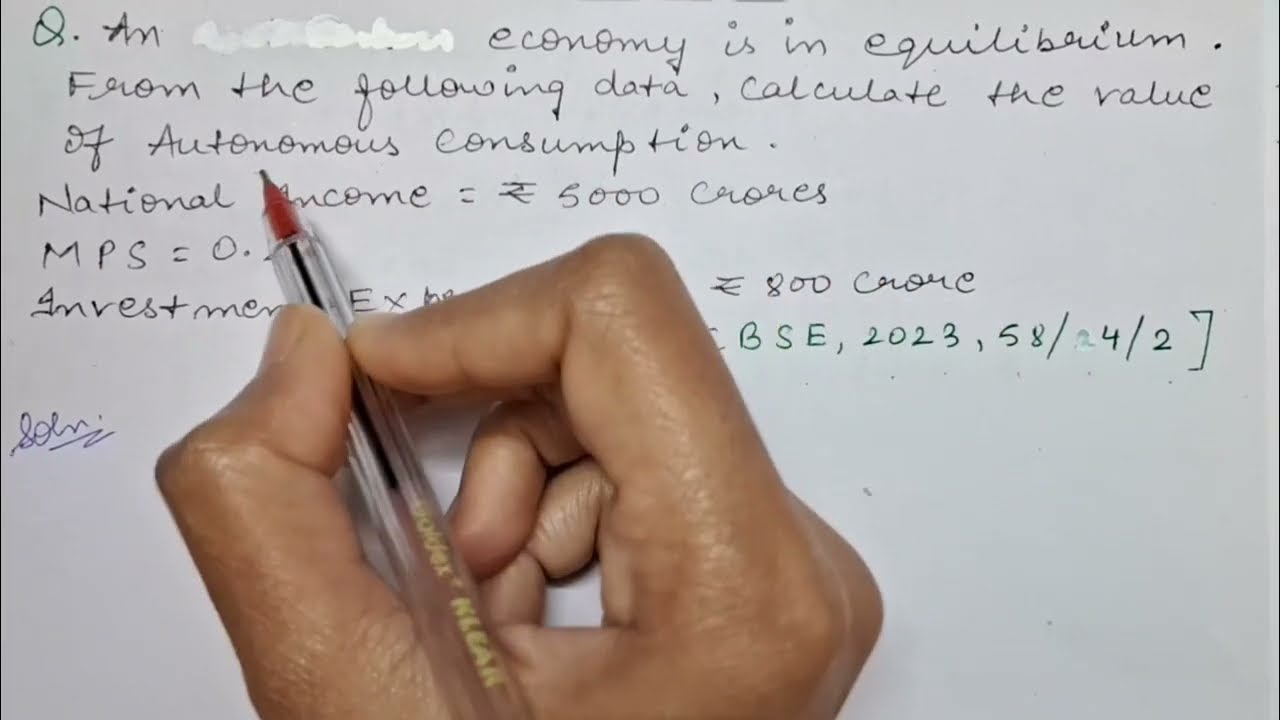 Q. An economy is in equilibrium.
From the following data, calculate the value
of Autonomous consumption.
National Income = ₹ 5000 crores
MPS = 0.
₹ 800 crore
BSE, 2023, 58/24/2]
Soln: